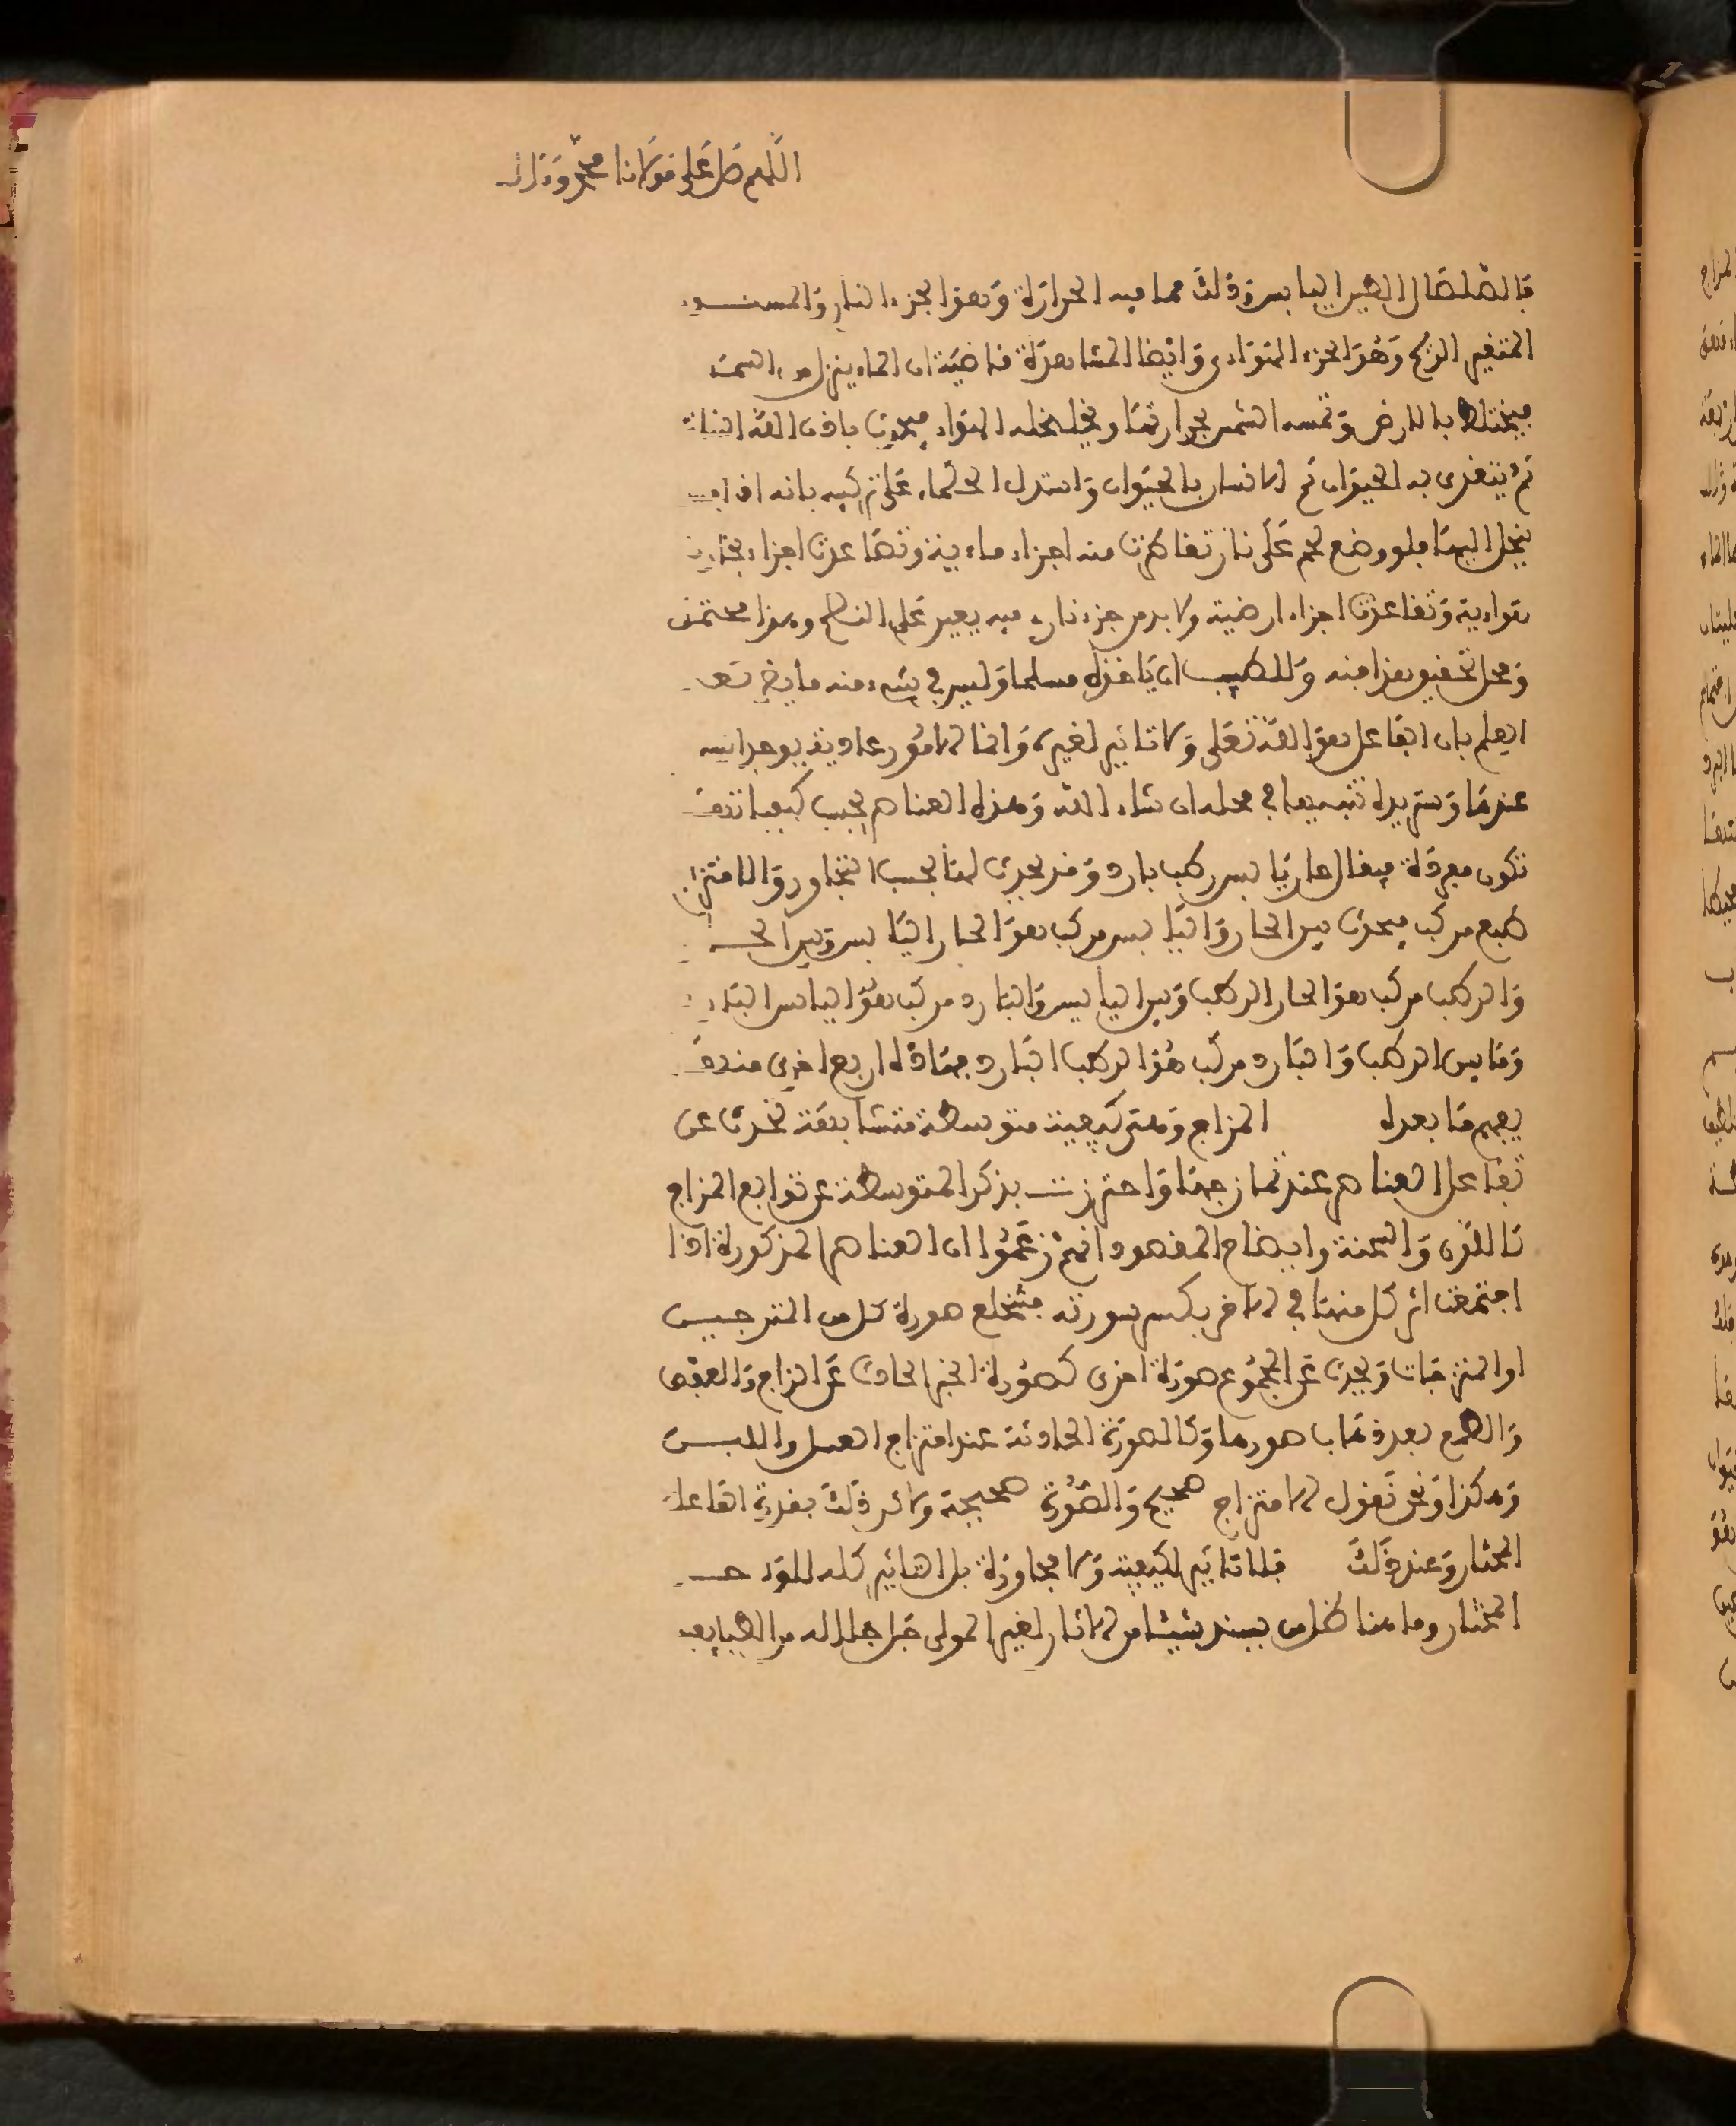 اللهم صل على مولانا محمد وءاله
فالصلصال الطين اليابس وذلك مما فيه الحرارة وهو الجزء النار والمسنون
المتغير الريح وهو الجزء الهوادى وايضا المشاهدة قاضية ان الماء ينزل من السماء
فيختلط بالارض وتمسه الشمس بحرارتها ويخلخله الهواء فيحدث باذن الله النبات
ثم يتغذى به الحيوان ثم الانسان بالحيوان واستدل الحكماء على تركيبه بانه اذا
ينحل اليها فلو وضع لحم على نار تقاطرت منه اجزاء ماءية وتصاعدت اجزاء بخارية
هواءية وتقاعدت اجزاء ارضية ولا بد من جزء نارى فيه يعين على النضج وهذا
ومحل تحقيق هذا منه وللطبيب ان ياخذه مسلما وليس في شىء منه ما يضر بعد
العلم بان الفاعل هو الله تعلى ولا تاثير لغيره وانما الامور عادية يوجد
عندها وستريد تنبيها في محله ان شاء الله وهذه العناصر بحسب كيفياتها
تكون مفردة فيقال حار يابس رطب بارد وقد يحدث لها بحسب التجاور والامتزاج
طبع مركب فيحدث بين الحار واليابس مركب هو الحار اليابس وبين الحار
والرطب مركب هو الحار الرطب وبين اليابس والبارد مركب هو اليابس البارد
وما بين الرطب والبارد مركب هو الرطب البارد فهاذه اربع اخرى
يفهم ما بعده المزاج وهى كيفية متوسطة متشابهة تحدث عن
تفاعل العناصر عند تمازجها واحترزت بذكر المتوسطة عن توابع المزاج
كاللون والسحنة وايضاح المقصود انهم زعموا ان العناصر المذكورة اذا
اجتمعت اثر كل منها في الاخر بكسر سورته فتنخلع صورة كل من الممتزجين
او الممتزجات ويحدث عن المجموع صورة اخرى كصورة الحبر الحادث عن الزاج والعفص
والصمغ بعد ذهاب صورها وكالصورة الحادثة عند امتزاج العسل واللبن
وهكذا ونحن نقول الامتزاج صحيح والصورة صحيحة ولاكن ذلك بقدرة الفاعل
المختار وعند ذلك فلا تاثير لكيفية ولا مجاورة بل التاثير كله للواحد
المختار وما هنا كل من يسند شيئا من الاثار لغير المولى جل جلاله من الطبايع